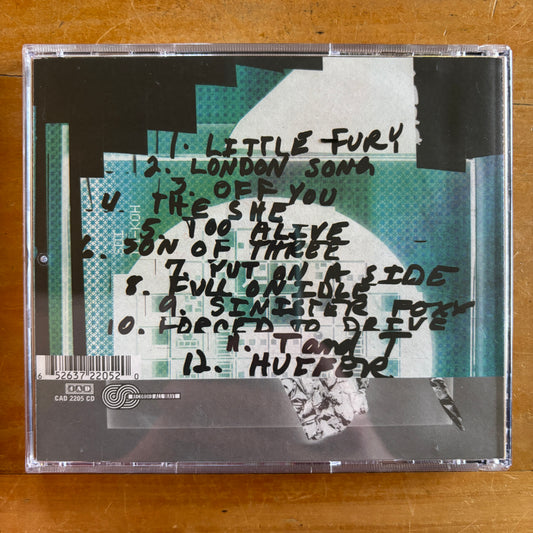 1. LITTLE FURY
2. LONDON SONG
3. OFF YOU
4. THE SHE
5. TOO ALIVE
6. SON OF THREE
7. PUT ON A SIDE
8. FULL ON IDLE
9. SINISTER FOXX
10. FORCED TO DRIVE
11. T and T
12. HUFFER
6 52637 22052 0
4AD
CAD 2205 CD
RECORDED ALL WAVE